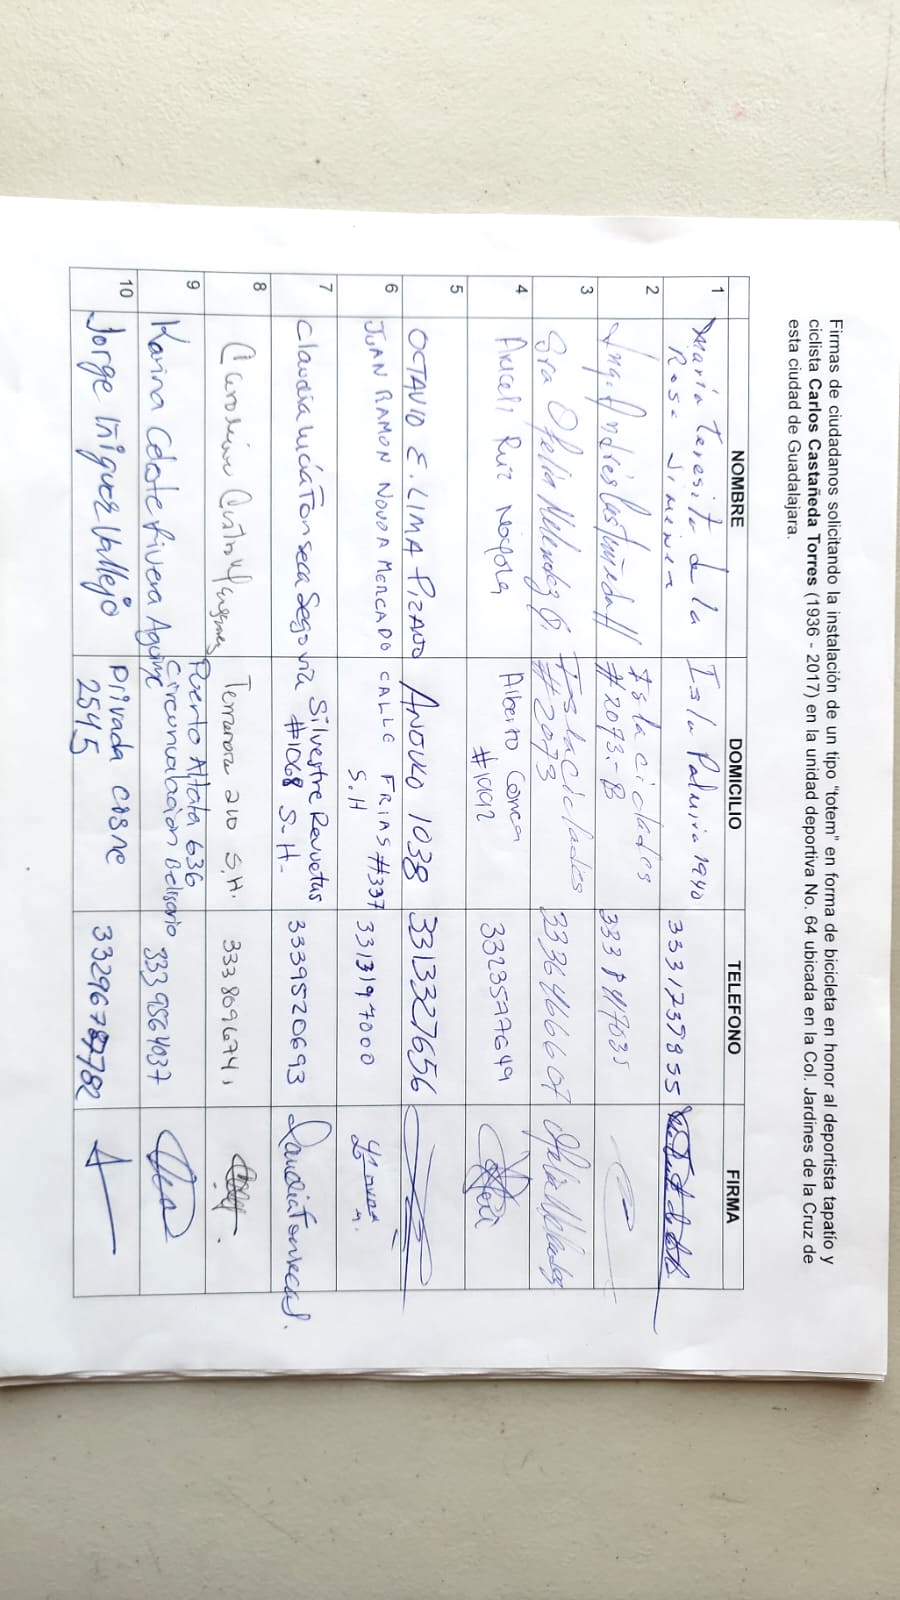 Firmas de ciudadanos solicitando la instalación de un tipo "totem" en forma de bicicleta en honor al deportista tapatío y
ciclista Carlos Castañeda Torres (1936 - 2017) en la unidad deportiva No. 64 ubicada en la Col. Jardines de la Cruz de
esta ciudad de Guadalajara.
NOMBRE DOMICILIO TELEFONO FIRMA
1 María Teresita de la Isla Palmira 1940 3331239855
Rosa Jimenez
2 Ing. Andrés Castañeda Isla ciclades
#2073-B
3 Sra Ofelia Melendez G. Isla ciclades
#2073
4 Araceli Ruiz Alberto Conca 3323577649
#1092
5 OCTAVIO E. LIMA PIZANO 1038 3313327656
6 JUAN RAMON NOVOA MERCADO CALLE FRIAS #337 3313197000
S.H
7 Claudia Lucía Fonseca Segovia Silvestre Revueltas 3339520693 Claudia Fonseca S.
#1068 S.H.
8 Terranova 200 S.H. 3338096741
9 Karina Celeste Rivera Aguirre Puerto Altata 636 3339564037
Circunvalación Belisario
10 Jorge Iñiguez Vallejo Privada cisne
2545